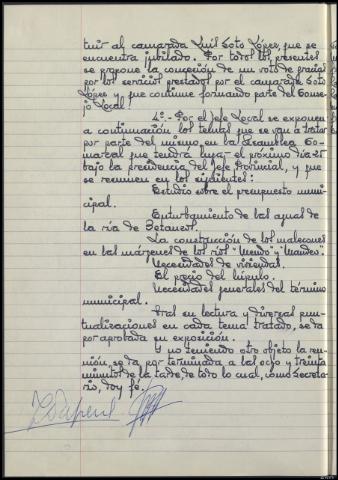 tuir al camarada Luis Soto López, que se
encuentra jubilado. Por todos los presentes
se propone la concesión de un voto de gracias
por los servicios prestados por el camarada Soto
López y que continue formando parte del Conse-
jo Local.
4º.- Por el Jefe Local se exponen
a continuación los temas que se van a tratar
por parte del mismo, en la Asamblea Co-
marcal que tendrá lugar el próximo dia 25
bajo la presidencia del Jefe Provincial, y que
se resumen en los siguientes:
Estudio sobre el presupuesto muni-
cipal.
Enturbamiento de las aguas de
la ría de Betanzos.
La construcción de los malecones
en las márgenes de los ríos "Mendo" y "Mandeo".
Necesidades de viviendas.
El precio del lúpulo.
Necesidades generales del término
municipal.
Tras su lectura y diversas pun-
tualizaciones en cada tema tratado, se da
por aprobada su exposición.
Y no teniendo otro objeto la reu-
nión, se da por terminada a las ocho y treinta
minutos de la tarde, de todo lo cual, como Secreta-
rio, doy fé.